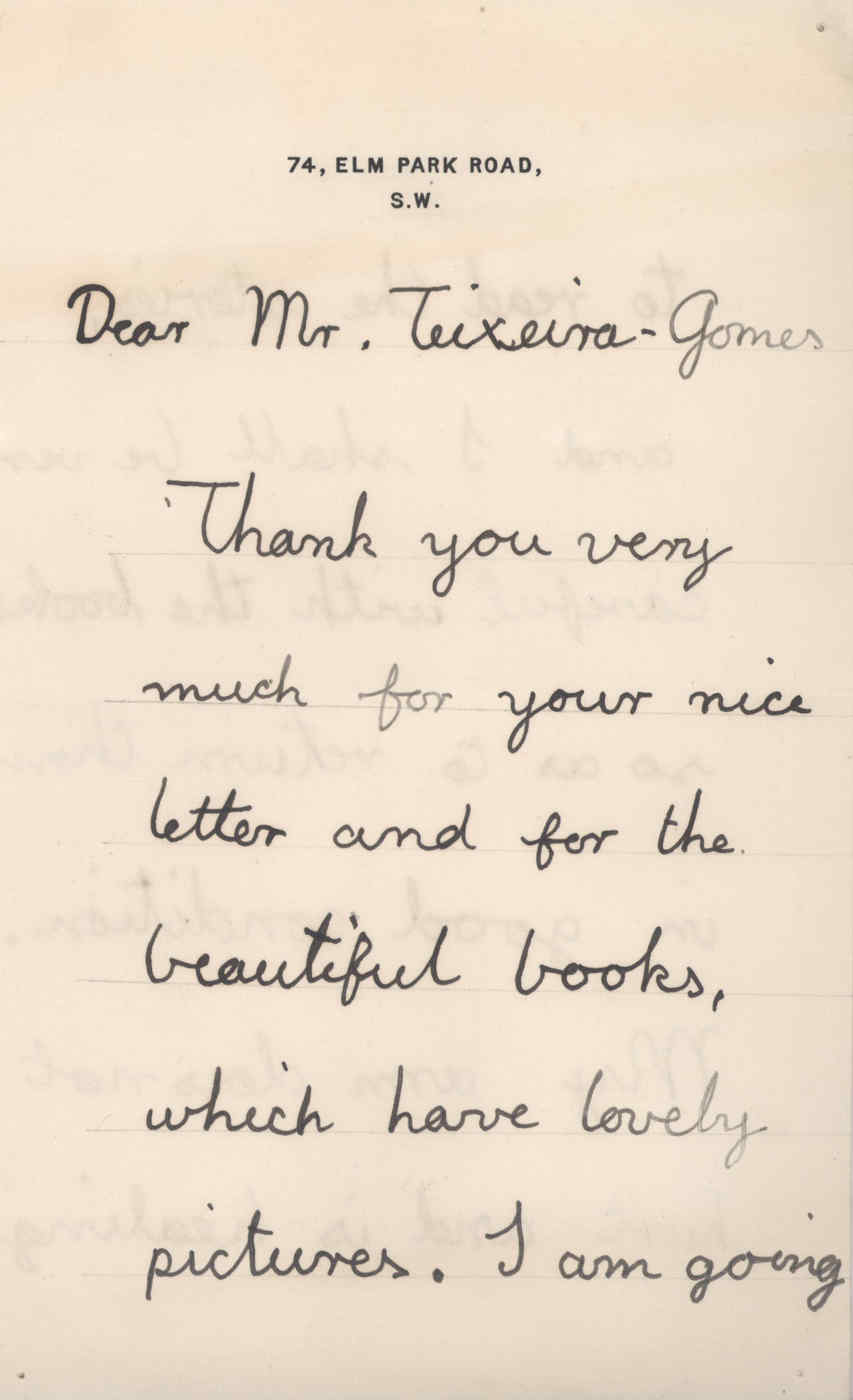 74, ELM PARK ROAD,
S.W.
Dear Mr. Teixeira-Gomes
Thank you very
much for your nice
letter and for the
beautiful books,
which have lovely
pictures. I am going